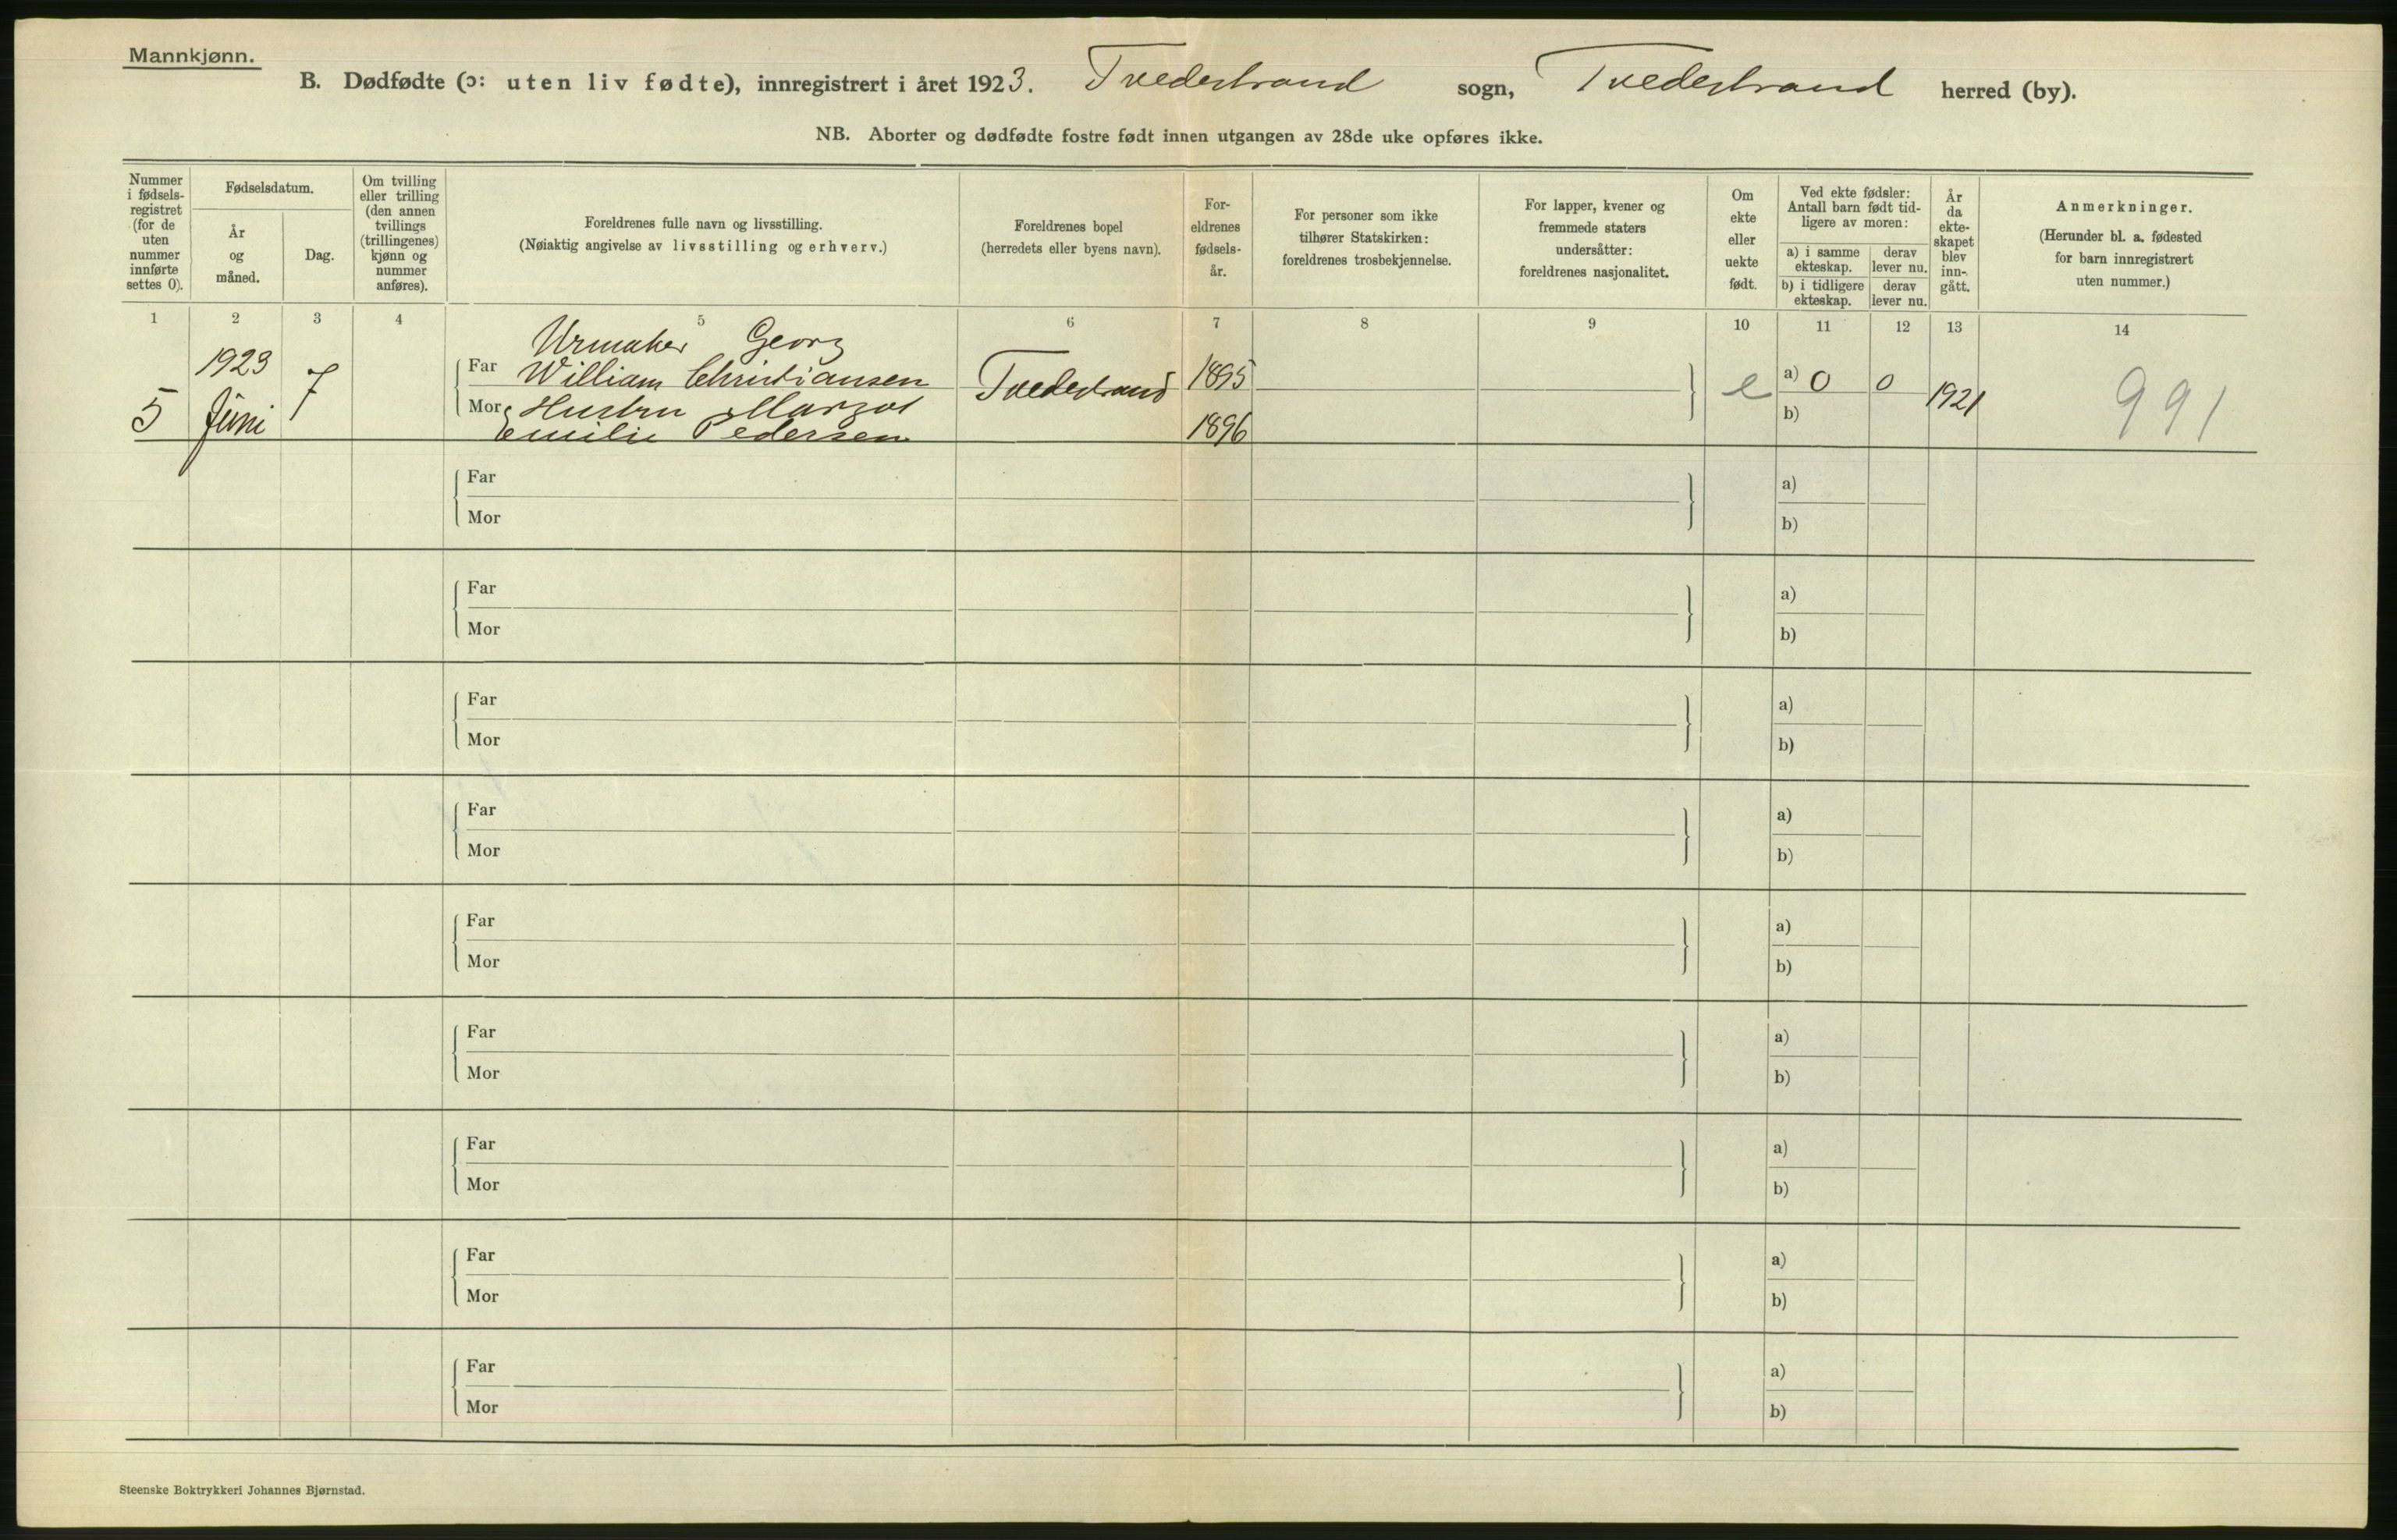 Mannkjønn.
B. Dødfødte (ɔ: uten liv fødte), innregistrert i året 1923. Tvedestrand sogn, Tvedestrand herred (by).
NB. Aborter og dødfødte fostre født innen utgangen av 28de uke opføres ikke.
Nummer
i fødsels-
registret
(for de
uten
nummer
innførte
settes 0).
Fødselsdatum.
År
og
måned.
Dag.
Om tvilling
eller trilling
(den annen
tvillings
(trillingenes)
kjønn og
nummer
anføres).
Foreldrenes fulle navn og livsstilling.
(Nøiaktig angivelse av livsstilling og erhverv.)
Foreldrenes bopel
(herredets eller byens navn).
For-
eldrenes
fødsels-
år.
For personer som ikke
tilhører Statskirken:
foreldrenes trosbekjennelse.
For lapper, kvener og
fremmede staters
undersåtter:
foreldrenes nasjonalitet.
Om
ekte
eller
uekte
født.
Ved ekte fødsler:
Antall barn født tid-
ligere av moren:
a) i samme
ekteskap.
derav
lever nu.
b) i tidligere
ekteskap.
derav
lever nu.
År
da
ekte-
skapet
blev
inn-
gått.
Anmerkninger.
(Herunder bl. a. fødested
for barn innregistrert
uten nummer.)
1 2 3 4 5 6 7 8 9 10 11 12 13 14
Urmaker Georg
1923 7 Far William Christiansen Tvedestrand 1895 e a) 0 0 1921 991
5 Juni Mor Hustru Margot b)
Emilie Pedersen 1896
Far a)
Mor b)
Far a)
Mor b)
Far a)
Mor b)
Far a)
Mor b)
Far a)
Mor b)
Far a)
Mor b)
Far a)
Mor b)
Far a)
Mor b)
Far a)
Mor b)
Steenske Boktrykkeri Johannes Bjørnstad.